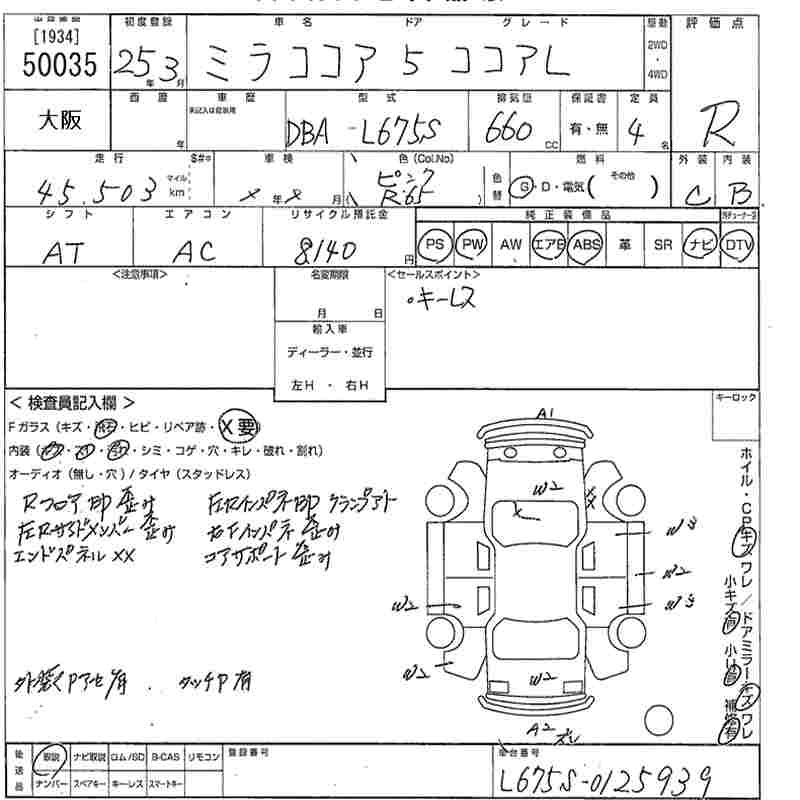 [1934]
50035
初度登録
25年3月
車名 ドア グレード
ミラココア 5 ココアL
駆動
2WD
・
4WD
評価点
R
大阪
西暦
年
車歴
未記入は自家用
型式
DBA-L675S
排気量
660 CC
保証書
有・無
定員
4名
走行
45,503
マイル
km
S#※
車検
×年×月
色(Col.No)
ピンク
R65
色替
燃料
G・D・電気( その他 )
外装
C
内装
B
シフト
AT
エアコン
AC
リサイクル預託金
8140円
純正装備品
PS PW AW エアB ABS 革 SR ナビ DTV
<注意事項>
名変期限
月 日
輸入車
ディーラー・並行
左H・右H
<セールスポイント>
・キーレス
<検査員記入欄>
キーロック
Fガラス(キズ・飛石・ヒビ・リペア跡・X要)
内装(・シミ・コゲ・穴・キレ・破れ・割れ)
オーディオ(無し・穴)/タイヤ(スタッドレス)
Rフロア凹歪み
左Rインパネ凹 クランプアト
左Rサイドメンバー歪み
右Fインパネ歪み
エンドパネルXX
コアサポート歪み
外装Pアセ有 . タッチP有
A1
W2
X
X
X
W3
W2
W3
W2
W2
W2
A2 ズレ
ホイル・CPキズ ワレ/ドアミラーキズ ワレ
小キズ有 小凹有 補修有
後送品
取説 ナビ取説 ロム/SD B-CAS リモコン
ナンバー スペアキー キーレス スマートキー
登録番号
車台番号
L675S-0125939